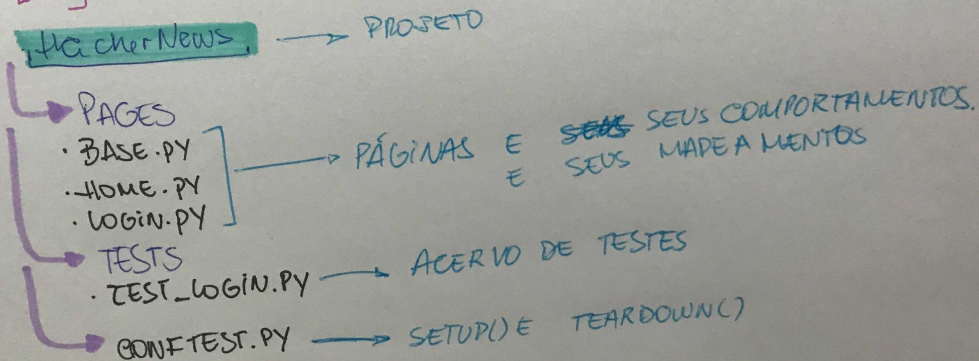 HackerNews → PROJETO
PAGES
· BASE.PY
· HOME.PY → PÁGINAS E SEUS SEUS COMPORTAMENTOS.
E SEUS MAPEAMENTOS
· LOGIN.PY
TESTS
· TEST_LOGIN.PY → ACERVO DE TESTES
CONFTEST.PY → SETUP() E TEARDOWN()